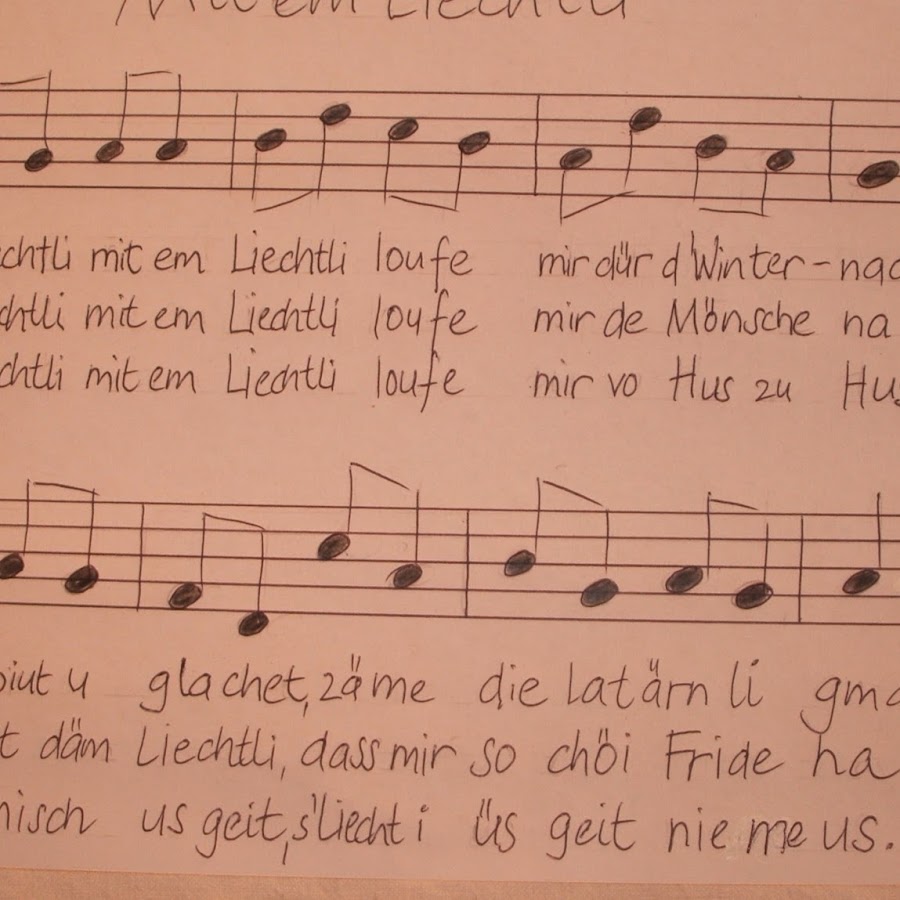 Mit em Liechtli
chtli mit em Liechtli loufe mir dür d'Winter-nac
chtli mit em Liechtli loufe mir de Mönsche na
chtli mit em Liechtli loufe mir vo Hus zu Hus
piut u glachet, zäme die latärn li gma
t däm Liechtli, dass mir so chöi Fride ha
nisch us geit, s'Liecht i üs geit nie me us.